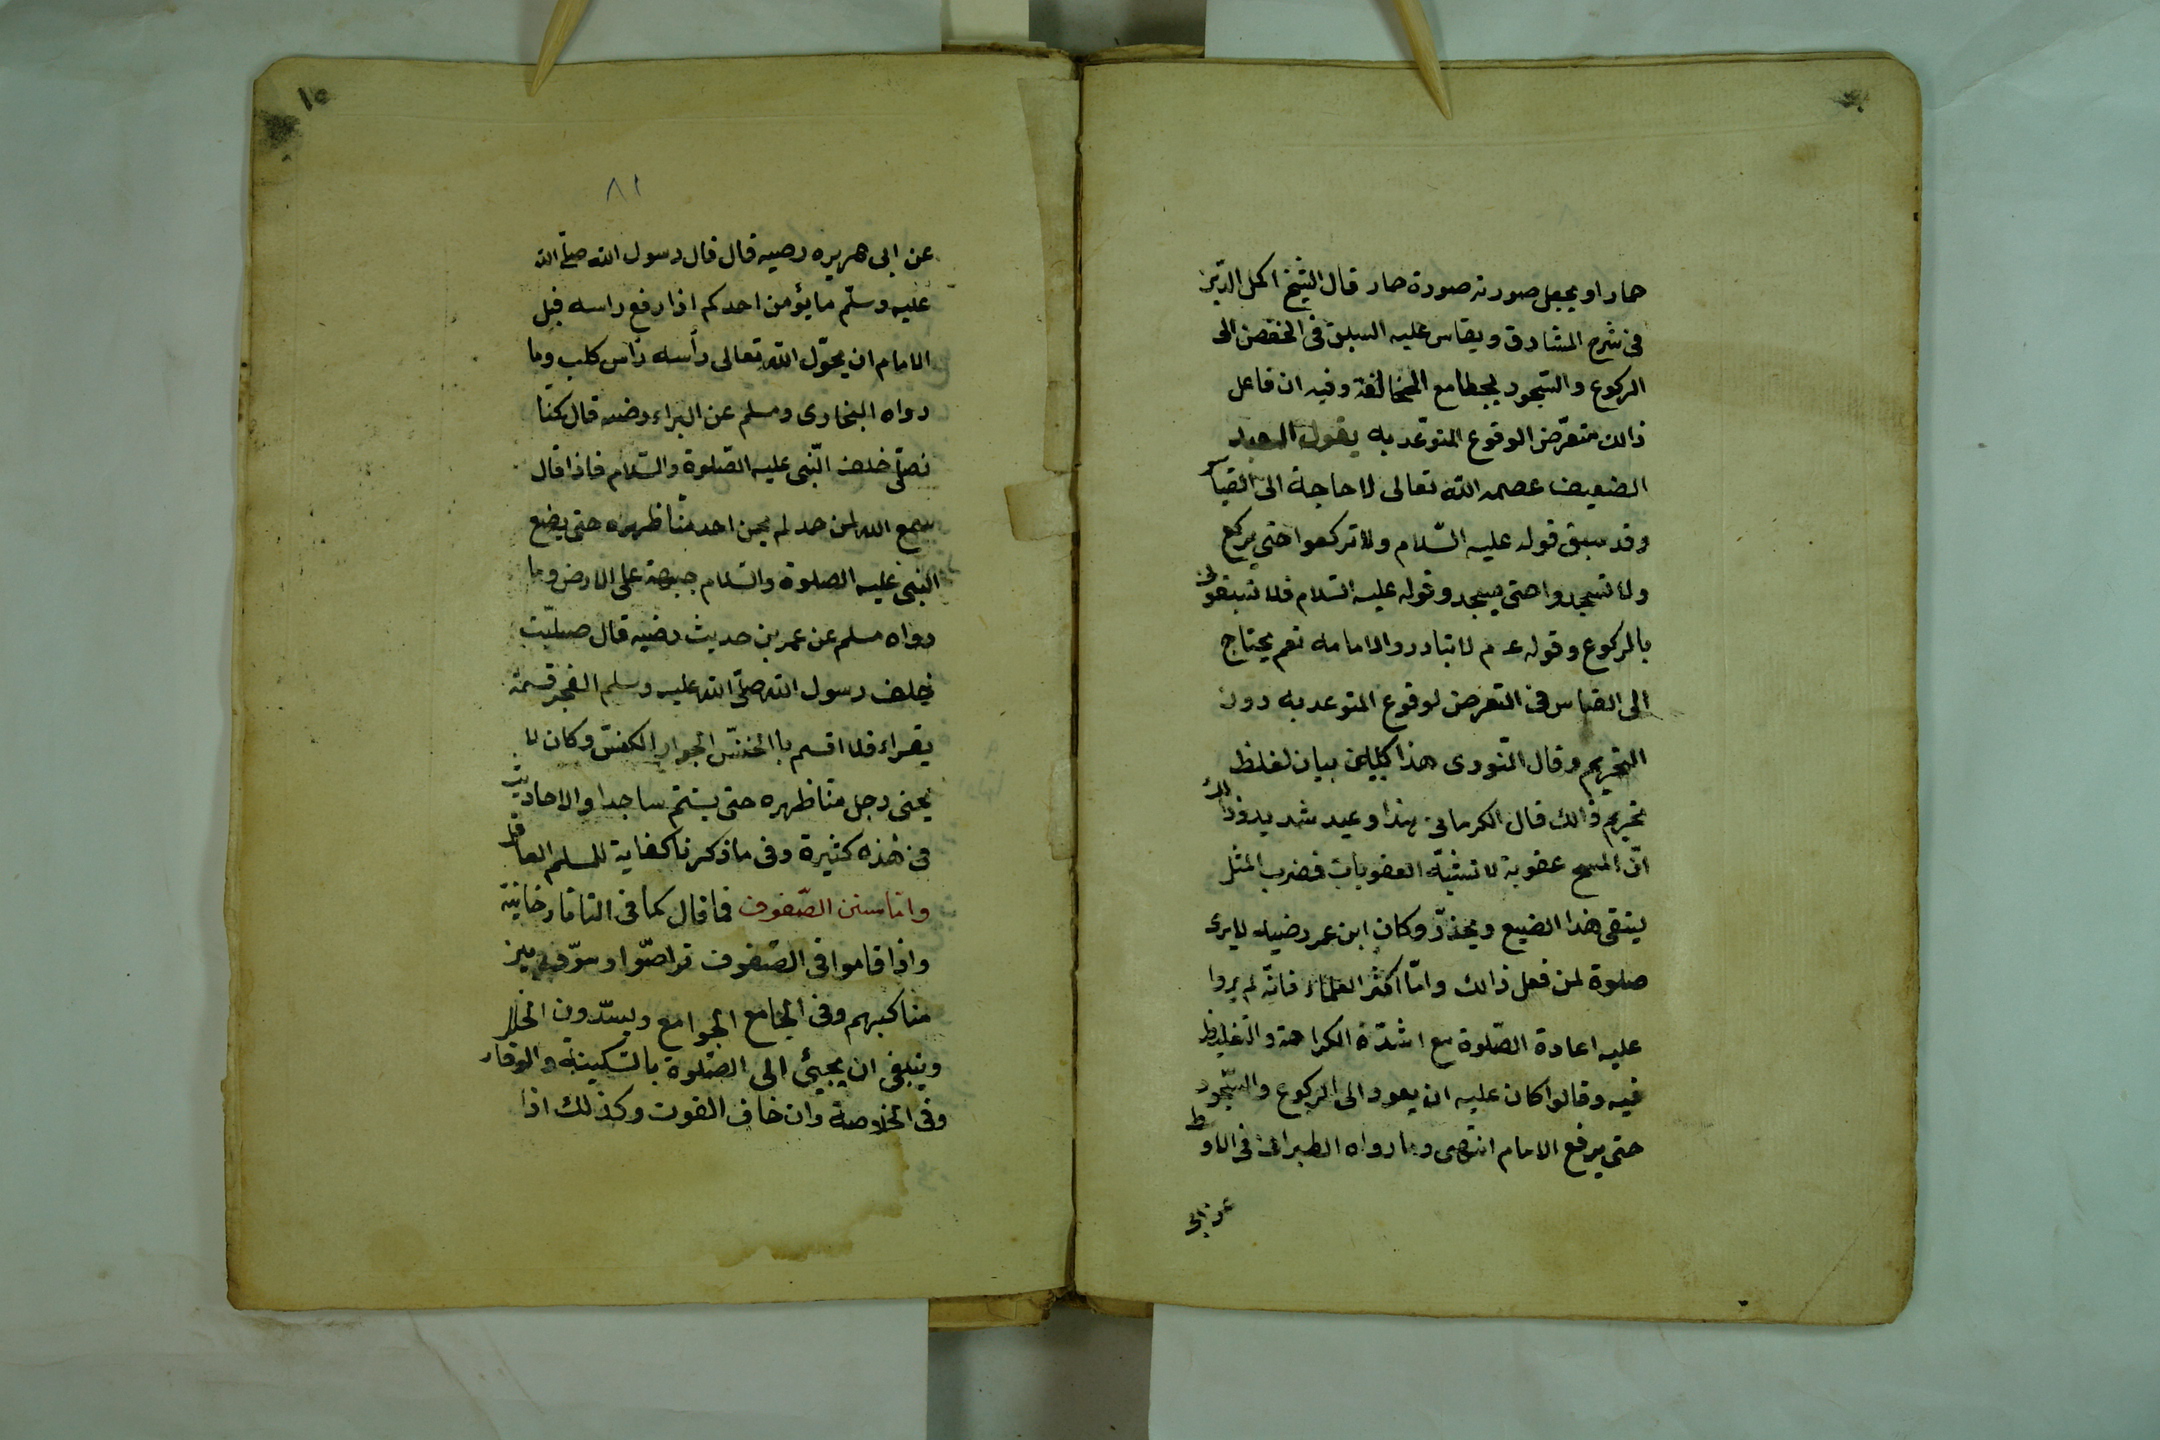 حمارا او يجعل صورته صورة حمار قال الشيخ اكمل الدين
فى شرح المشارق ويقاس عليه السبق فى الخفض الى
الركوع والسّجود بجطامع المخالفة وفيه ان فاعل
ذالك متعرّض الوقوع المتوعّد به يقول العبد
الضعيف عصمه الله تعالى لا حاجة الى القياس
وقد سبق قوله عليه السّلام ولا تركعوا حتى يركع
ولا تسجدوا حتى يسجد وقوله عليه السّلام فلا تسبقونى
بالركوع وقوله ع م لا تبادروا الامامه نعم يحتاج
الى القياس فى التعرض لوقوع المتوعد به دون
التحريم وقال النّووى هذا كله بيان لغلظ
تحريم ذالك قال الكرمانى هذا وعيد شديد وذالك
انّ المسخ عقوبة لا تشبّه العقوبات فضرب المثل
ليتقى هذا الضيع ويحذّر وكان ابن عمر رضيه لا يرى
صلوة لمن فعل ذالك وامّا اكثر العلماء فانّه لم يروا
عليه اعادة الصّلوة مع اشدّة الكراهة والتّغليظ
فيه وقالوا كان عليه ان يعود الى الركوع والسّجود
حتى يرفع الامام انتهى وما رواه الطبرانى فى الاوط
عن ابى
٨١
عن ابى هريره رضيه قال قال رسول الله صلّى الله
عليه وسلّم ما يؤمن احدكم اذا رفع راسه قبل
الامام ان يحوّل الله تعالى رأسه رأس كلب وما
رواه البخارى ومسلم عن البراء رضه قال كنّا
نصلّى خلف النّبى عليه الصّلوة والسّلام فاذا قال
سمع الله لمن حمد لم يحن احد منّا ظهره حتى يضع
النبى عليه الصلوة والسّلام جبهة على الارض وما
رواه مسلم عن عمر بن حديث رضيه قال صلّيت
خلف رسول الله صلّى الله عليه وسلم الفجر قسمة
يقراء فلا اقسم با الخنّس الجوار الكنّس وكان لا
يحنى رجل منّا ظهره حتى يستتم ساجدا والاحاديث
فى هذه كثيرة وفى ما ذكرنا كفاية للمسلم العاقل
وامّا سنن الصّفوف فما قال كما فى التاتار خانية
واذا قاموا فى الصّفوف تراصّوا وسوّوا بين
مناكبهم وفى الجامع الجوامع ويسدّون الخلل
وينبغى ان يجيئ الى الصّلوة بالسّكينة والوقار
وفى الخلاصة وان خاف الفوت وكذلك اذا